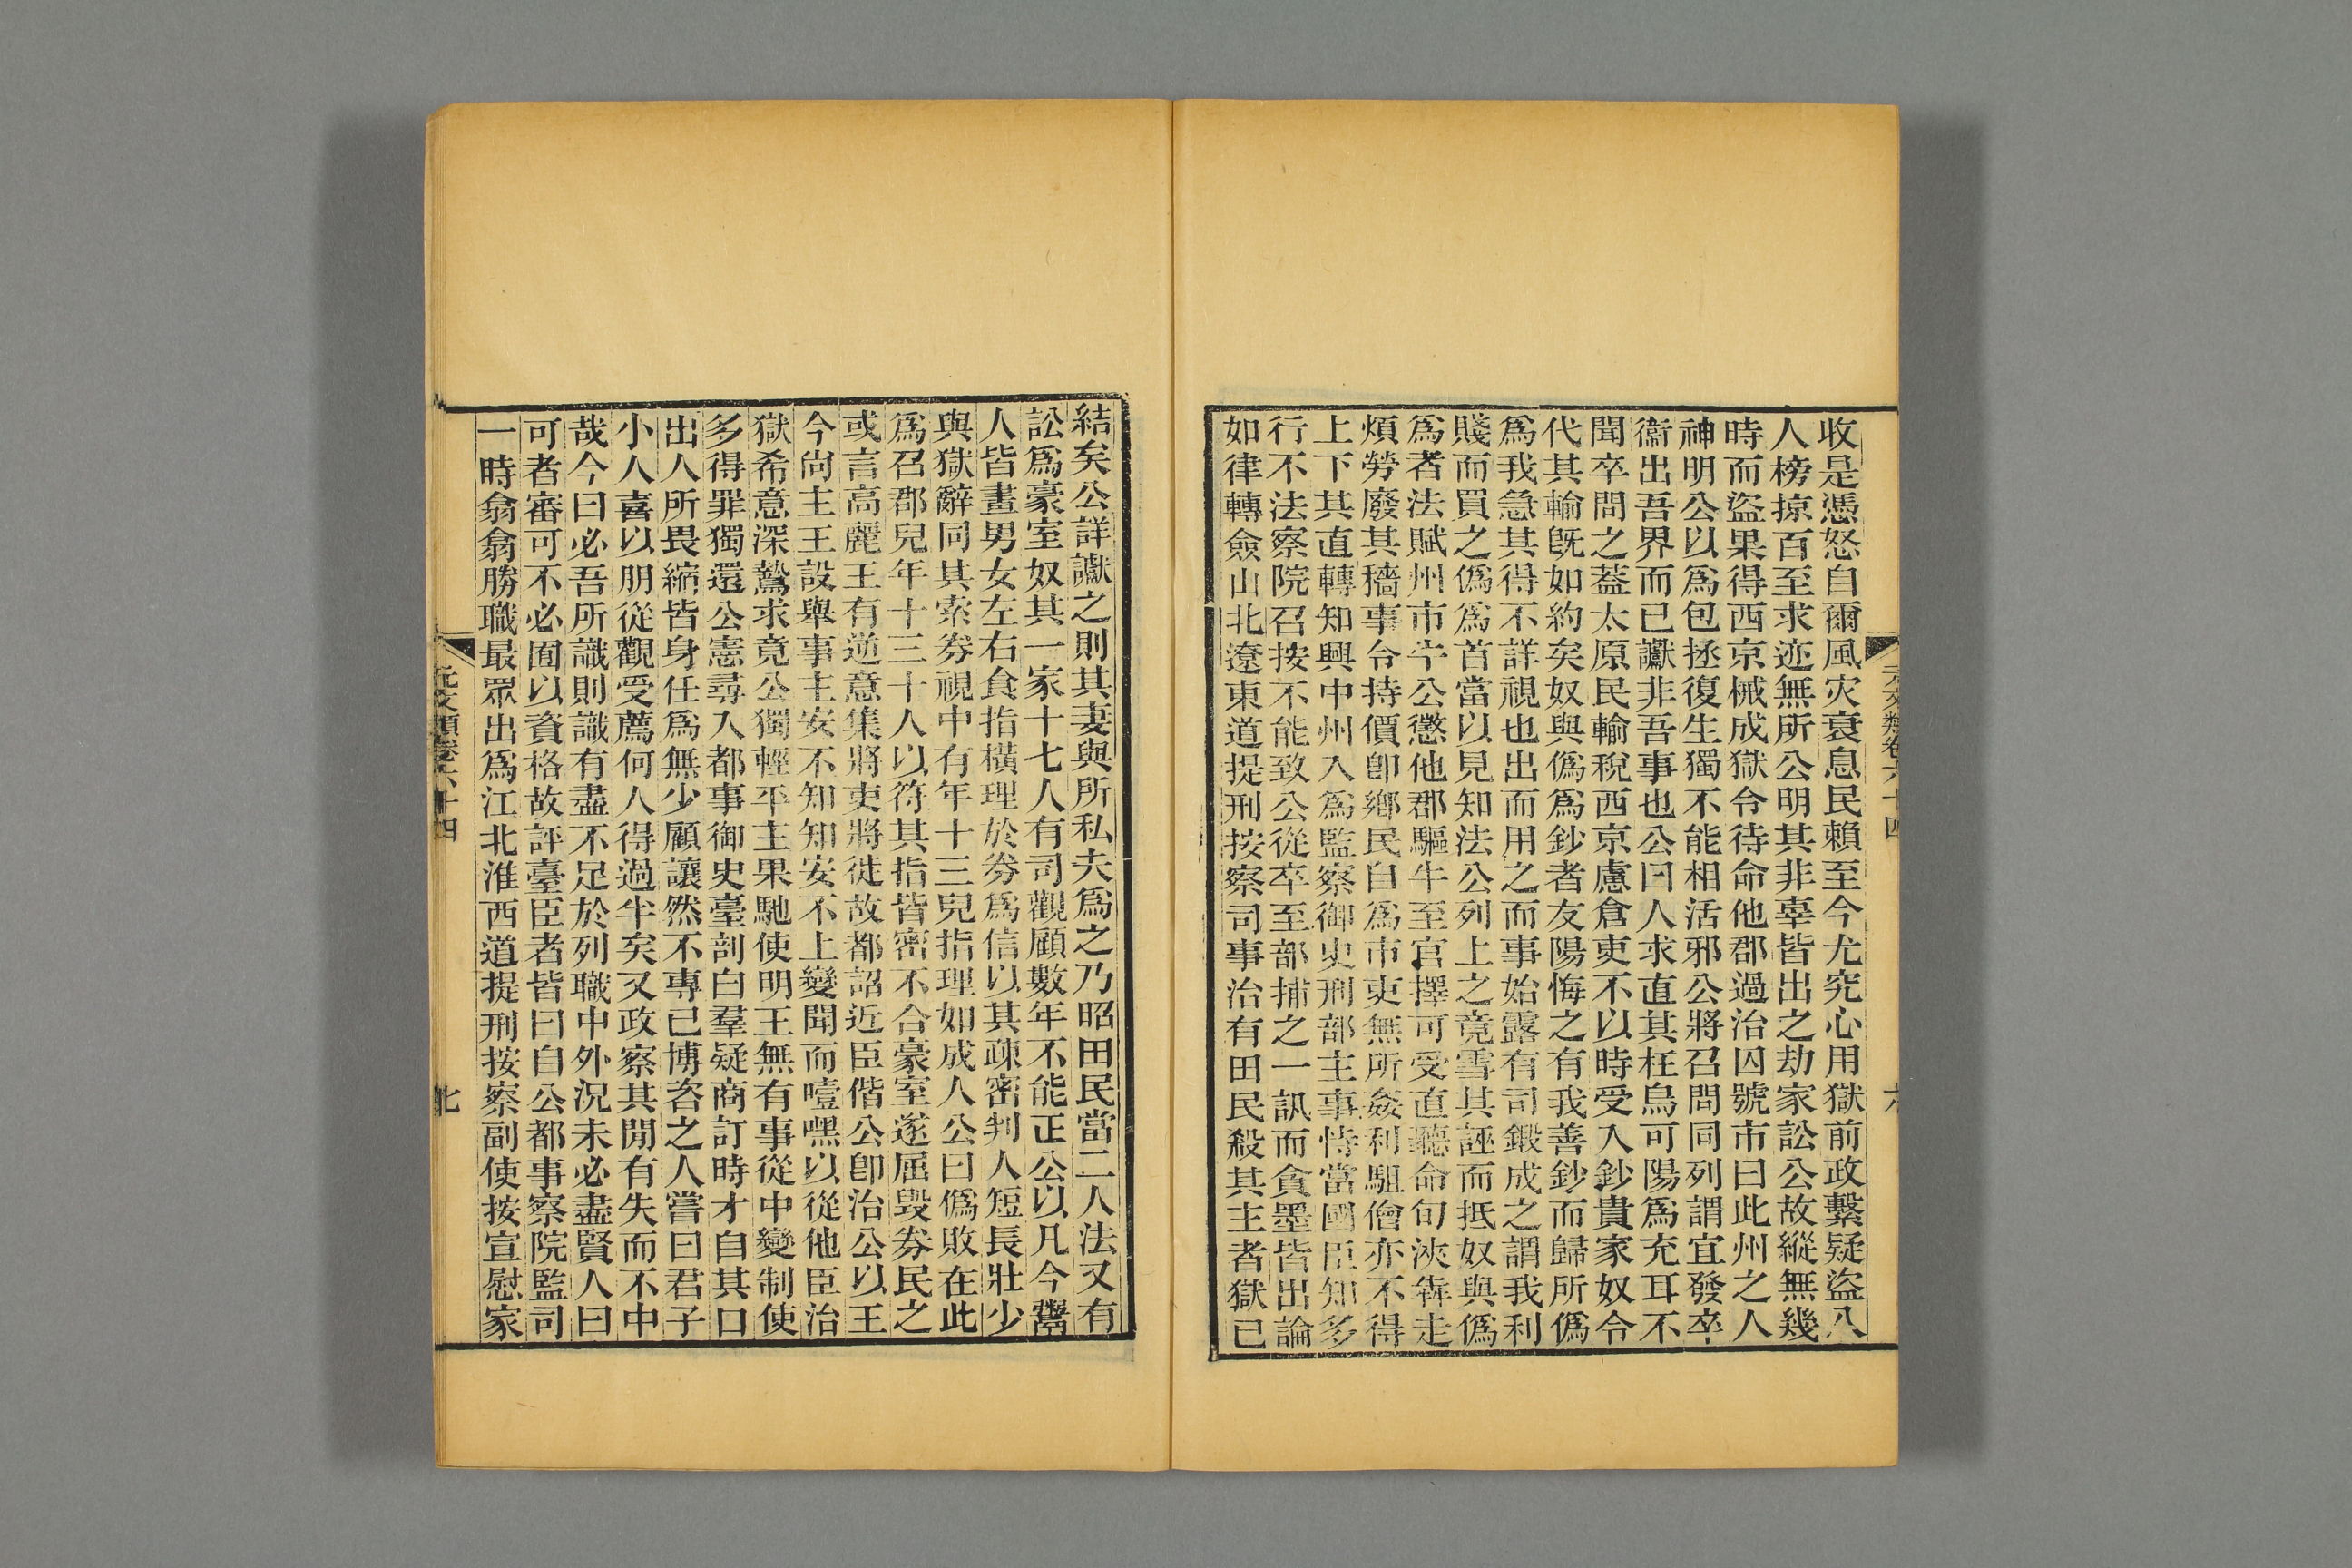 收是憑怒自爾風灾衰息民賴至今尤究心用獄前政繫疑盜八
人榜掠百至求迹無所公明其非辜皆出之劫家訟公故縱無幾
時而盜果得西京械成獄令待命他郡過治囚號市曰此州之人
神明公以爲包拯復生獨不能相活邪公將召問同列謂宜發卒
衞出吾界而已讞非吾事也公曰人求直其枉烏可陽爲充耳不
聞卒問之蓋太原民輸稅西京慮倉吏不以時受入鈔貴家奴令
代其輸旣如約矣奴與僞爲鈔者友陽悔之有我善鈔而歸所僞
爲我急其得不詳視也出而用之而事始露有司鍛成之謂我利
賤而買之僞爲首當以見知法公列上之竟雪其誣而抵奴與僞
爲者法賦州市牛公懲他郡驅牛至官擇可受直聽命旬浹犇走
煩勞廢其穡事令持價卽鄉民自爲市吏無所姦利駔儈亦不得
上下其直轉知興中州入爲監察御史刑部主事恃當國臣知多
行不法察院召按不能致公從卒至部捕之一訊而貪墨皆出論
如律轉僉山北遼東道提刑按察司事治有田民殺其主者獄已
元文類卷六十四
六
結矣公詳讞之則其妻與所私夫爲之乃昭田民當二人法又有
訟爲豪室奴其一家十七人有司觀顧數年不能正公以凡今鬻
人皆畫男女左右食指橫理於券爲信以其疎密判人短長壯少
與獄辭同其索券視中有年十三兒指理如成人公曰僞敗在此
爲召郡兒年十三十人以符其指皆密不合豪室遂屈毀券民之
或言高麗王有逆意集將吏將徙故都詔近臣偕公卽治公以王
今尙主王設舉事主安不知知安不上變聞而噎嘿以從他臣治
獄希意深鷙求竟公獨輕平主果馳使明王無有事從中變制使
多得罪獨還公憲尋入都事御史臺剖白羣疑商訂時才自其口
出人所畏縮皆身任爲無少顧讓然不專已博咨之人嘗曰君子
小人喜以朋從觀受薦何人得過半矣又政察其閒有失而不中
哉今曰必吾所識則識有盡不足於列職中外況未必盡賢人曰
可者審可不必囿以資格故評臺臣者皆曰自公都事察院監司
一時翕翕勝職最眾出爲江北淮西道提刑按察副使按宣慰家
元文類卷六十四